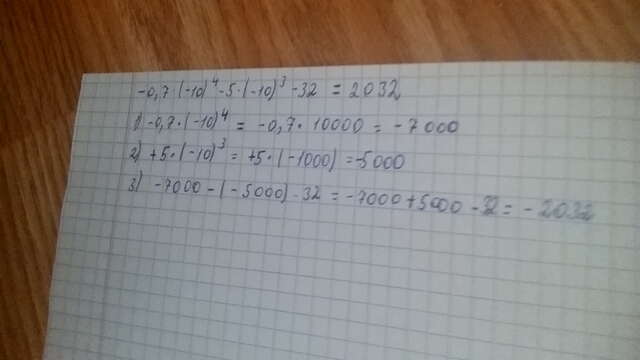 -0,7·(-10)⁴-5·(-10)³-32 = 2032
1) -0,7·(-10)⁴ = -0,7·10000 = -7000
2) +5·(-10)³ = +5·(-1000) = -5000
3) -7000-(-5000)-32 = -7000+5000-32 = -2032